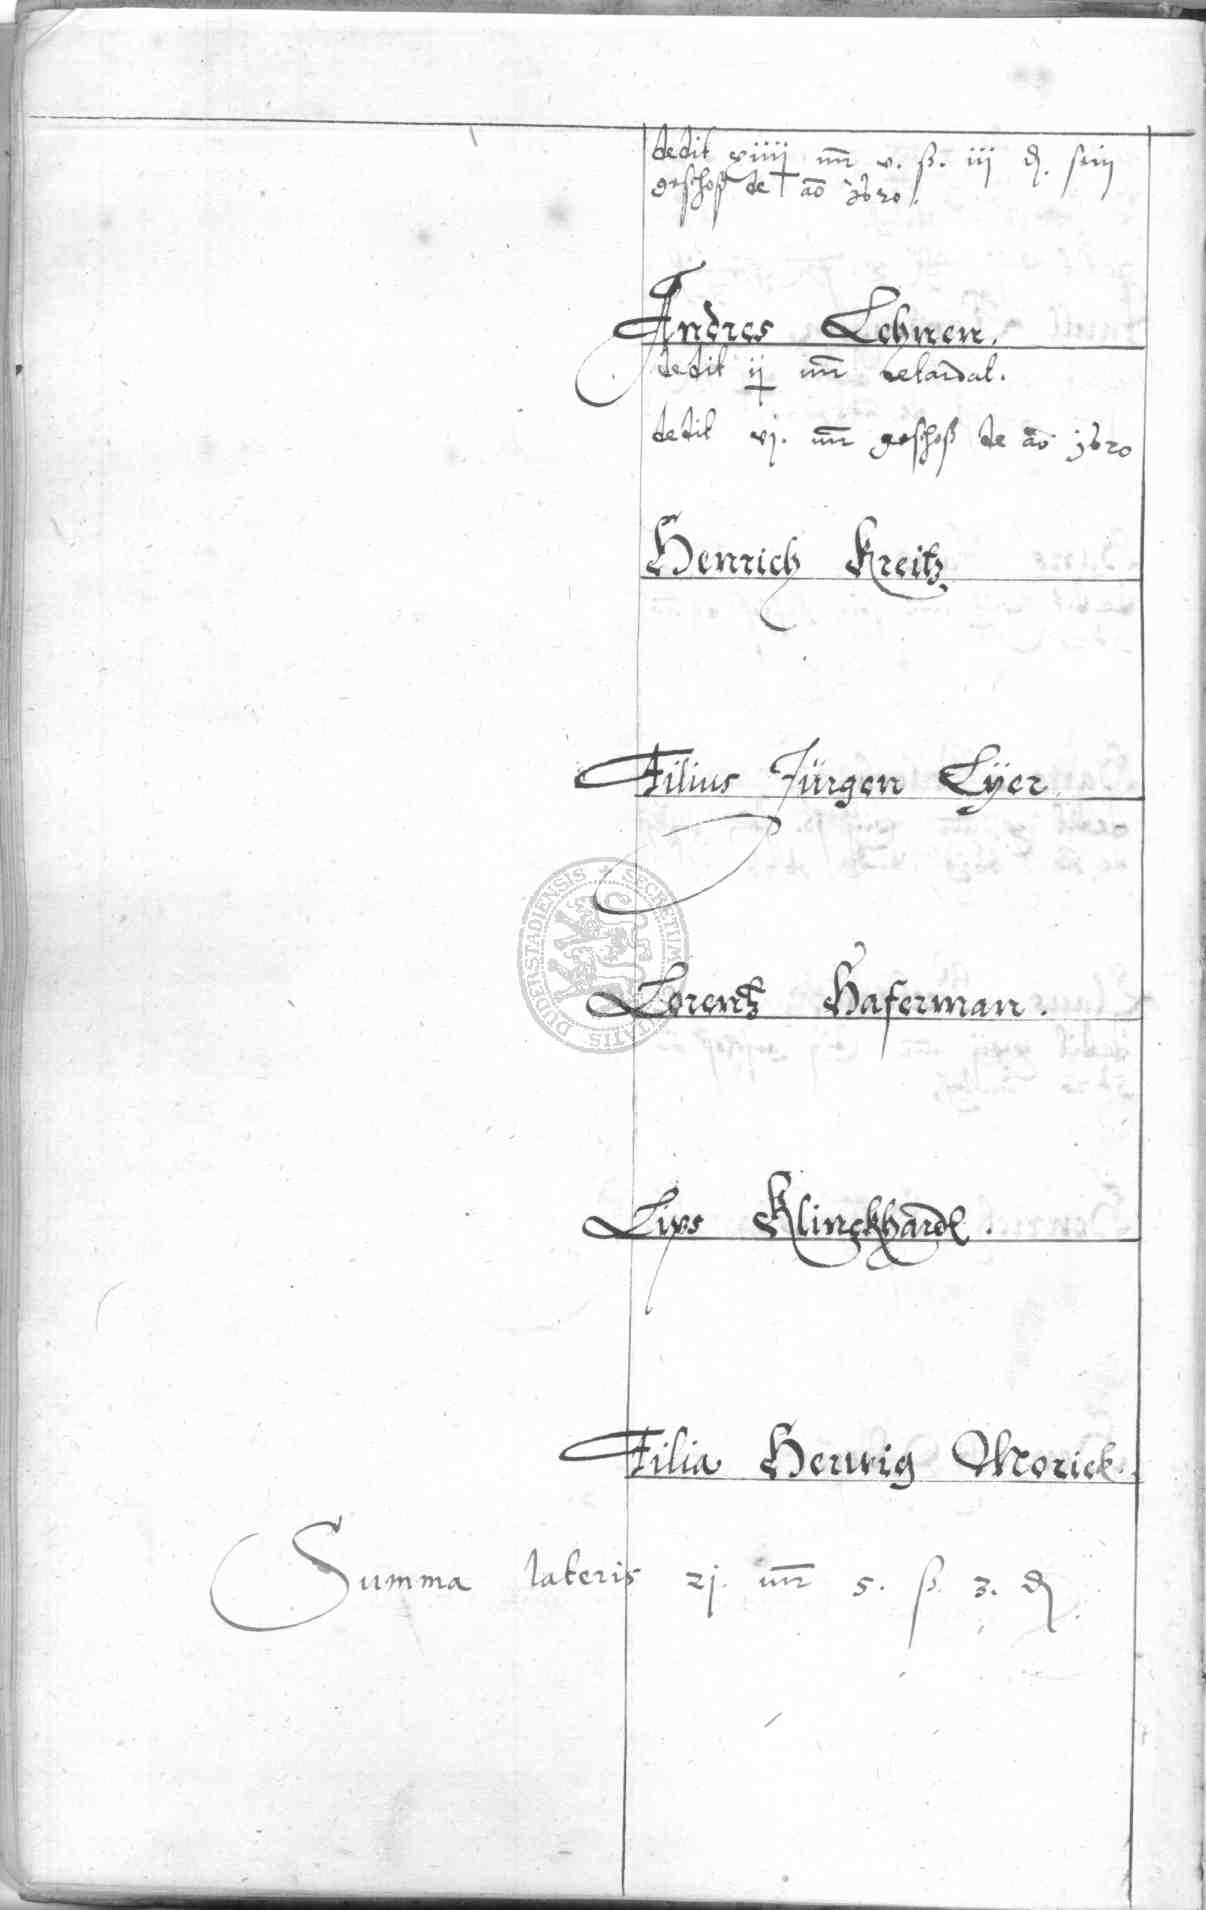 dedit xiiij mr v. ß. iij d. sein
geschoß de ao 1620.
Andres Lehnen.
dedit ij mr retardat.
dedit vj. mr geschoß de ao 1620
Henrich Kreitz
Filius Jürgen Lÿer
Lorentz Haferman.
Lips Klinckhardt.
Filia Herwig Morick.
Summa lateris 21. mr 5. ß. 3. d
SECRETUM DUDERSTADIENSIS